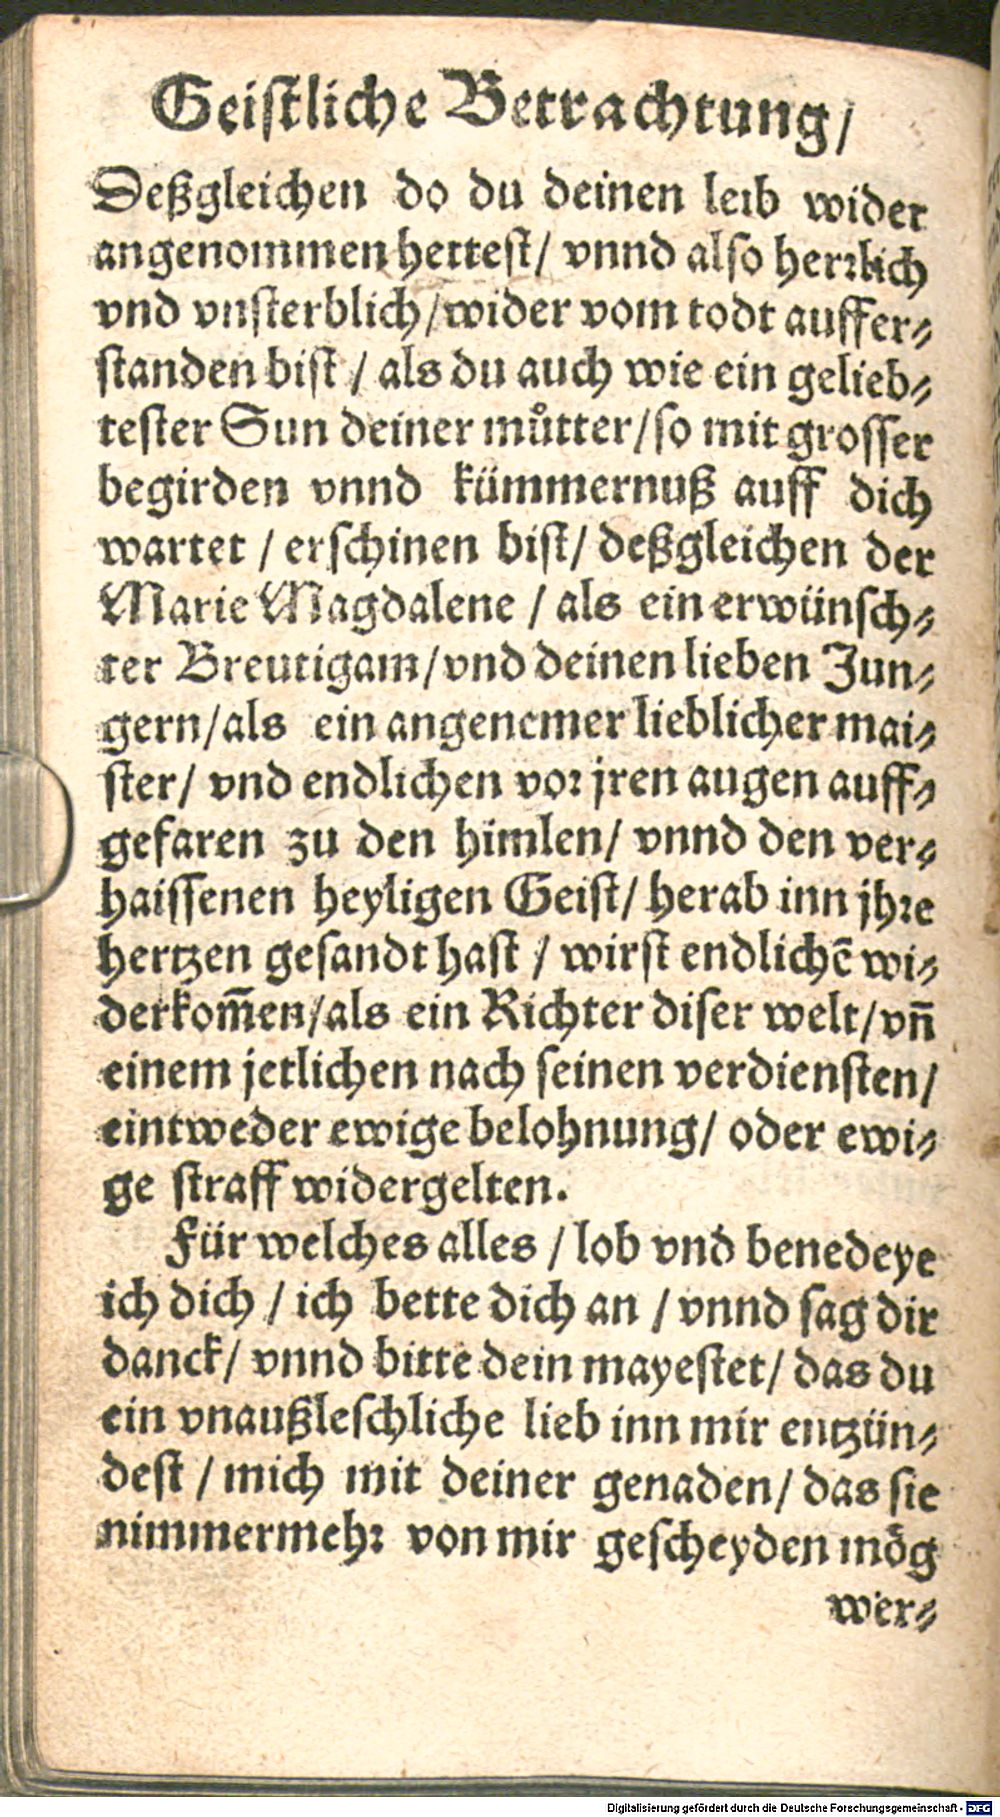 Geistliche Betrachtung/
Deßgleichen do du deinen leib wider
angenommen hettest/ vnnd also herrlich
vnd vnsterblich/wider vom todt auffer⸗
standen bist / als du auch wie ein gelieb⸗
tester Sun deiner můtter/so mit grosser
begirden vnnd kümmernuß auff dich
wartet / erschinen bist/ deßgleichen der
Marie Magdalene / als ein erwünsch⸗
ter Breutigam/vnd deinen lieben Jun⸗
gern/als ein angenemer lieblicher mai⸗
ster/ vnd endlichen vor jren augen auff⸗
gefaren zu den himlen/ vnnd den ver⸗
haissenen heyligen Geist/ herab inn jhre
hertzen gesandt hast / wirst endlichē wi⸗
derkom̄en/als ein Richter diser welt/vn̄
einem jetlichen nach seinen verdiensten/
eintweder ewige belohnung/ oder ewi⸗
ge straff widergelten.
Für welches alles / lob vnd benedeye
ich dich / ich bette dich an / vnnd sag dir
danck/ vnnd bitte dein mayestet/ das du
ein vnaußleschliche lieb inn mir entzün⸗
dest / mich mit deiner genaden/ das sie
nimmermehr von mir gescheyden mög
wer⸗
Digitalisierung gefördert durch die Deutsche Forschungsgemeinschaft - DFG